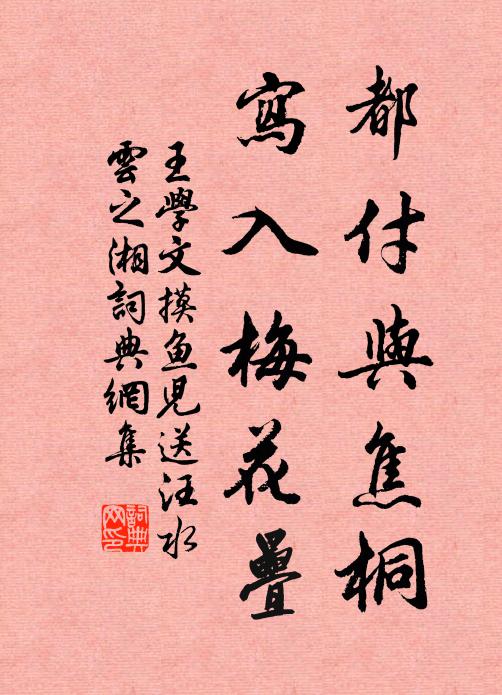 都付與焦桐
寫入梅花疊
王學文摸鱼児送汪水
雲之湘詞典網集
詞典
网印